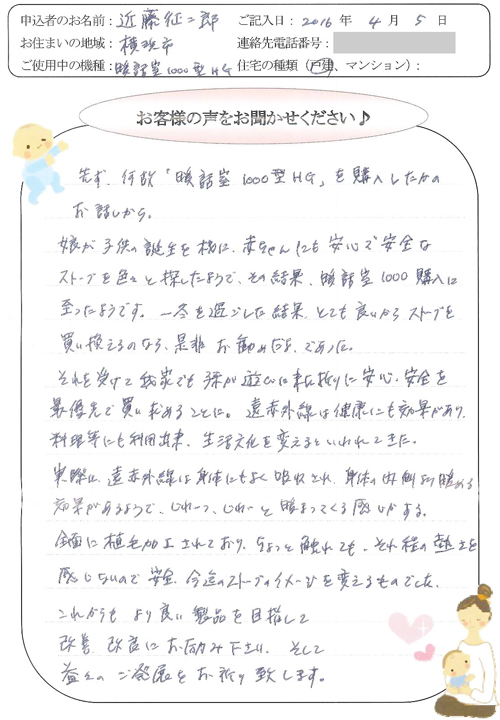 申込者のお名前：近藤征二郎 ご記入日：2016年4月5日
お住まいの地域：横浜市 連絡先電話番号：
ご使用中の機種：暖話室1000型HG 住宅の種類（戸建、マンション）：
お客様の声をお聞かせください♪
先ず、何故「暖話室1000型HG」を購入したかの
お話しから。
娘が子供の誕生を機に、赤ちゃんにも安心で安全な
ストーブを色々と探したようで、その結果、暖話室1000購入に
至ったようです。一冬を過ごした結果、とても良いからストーブを
買い換えるのなら、是非お勧めだよ、であった。
それを受けて我家でも孫が遊びに来た折りに安心・安全を
最優先で買い求めることに。遠赤外線は健康にも効果があり、
料理等にも利用出来、生活文化を変えるといわれてきた。
実際に、遠赤外線は身体にもよく吸収され、身体の内側より暖める
効果があるようで、じわーっ、じわーと暖まってくる感じがする。
全面に植毛加工されており、ちょっと触れても、それ程の熱さを
感じないので安全、今迄のストーブのイメージを変えるものでした。
これからもより良い製品を目指して
改善、改良にお励み下さい。そして
益々のご発展をお祈り致します。